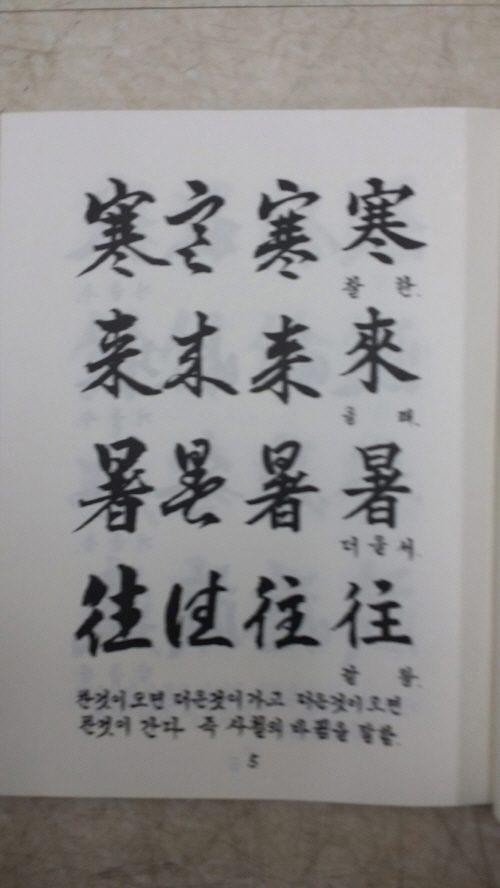 寒 寒 寒 寒
찰 한.
来 来 来 來
올 래.
暑 暑 暑 暑
더울 서.
往 往 往 往
갈 왕.
찬것이오면 더운것이가고 더운것이오면
찬것이 간다. 즉 사철의 바뀜을 말함.
5